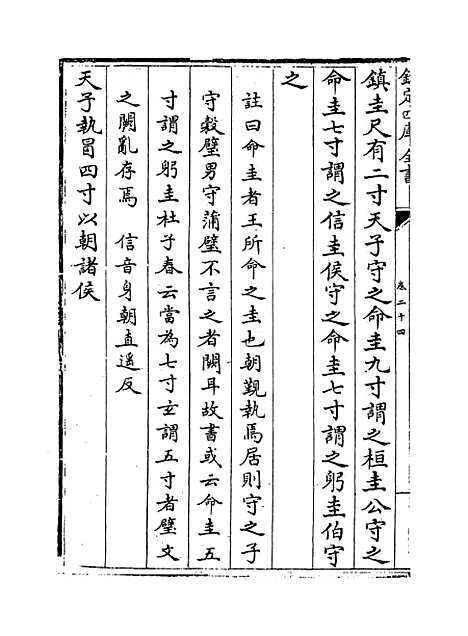 欽定四庫全書
卷二十四
鎮圭尺有二寸天子守之命圭九寸謂之桓圭公守之
命圭七寸謂之信圭侯守之命圭七寸謂之躬圭伯守
之
註曰命圭者王所命之圭也朝覲執焉居則守之子
守穀璧男守蒲璧不言之者闕耳故書或云命圭五
寸謂之躬圭杜子春云當為七寸玄謂五寸者璧文
之闕亂存焉　信音身朝直遥反
天子執冒四寸以朝諸侯